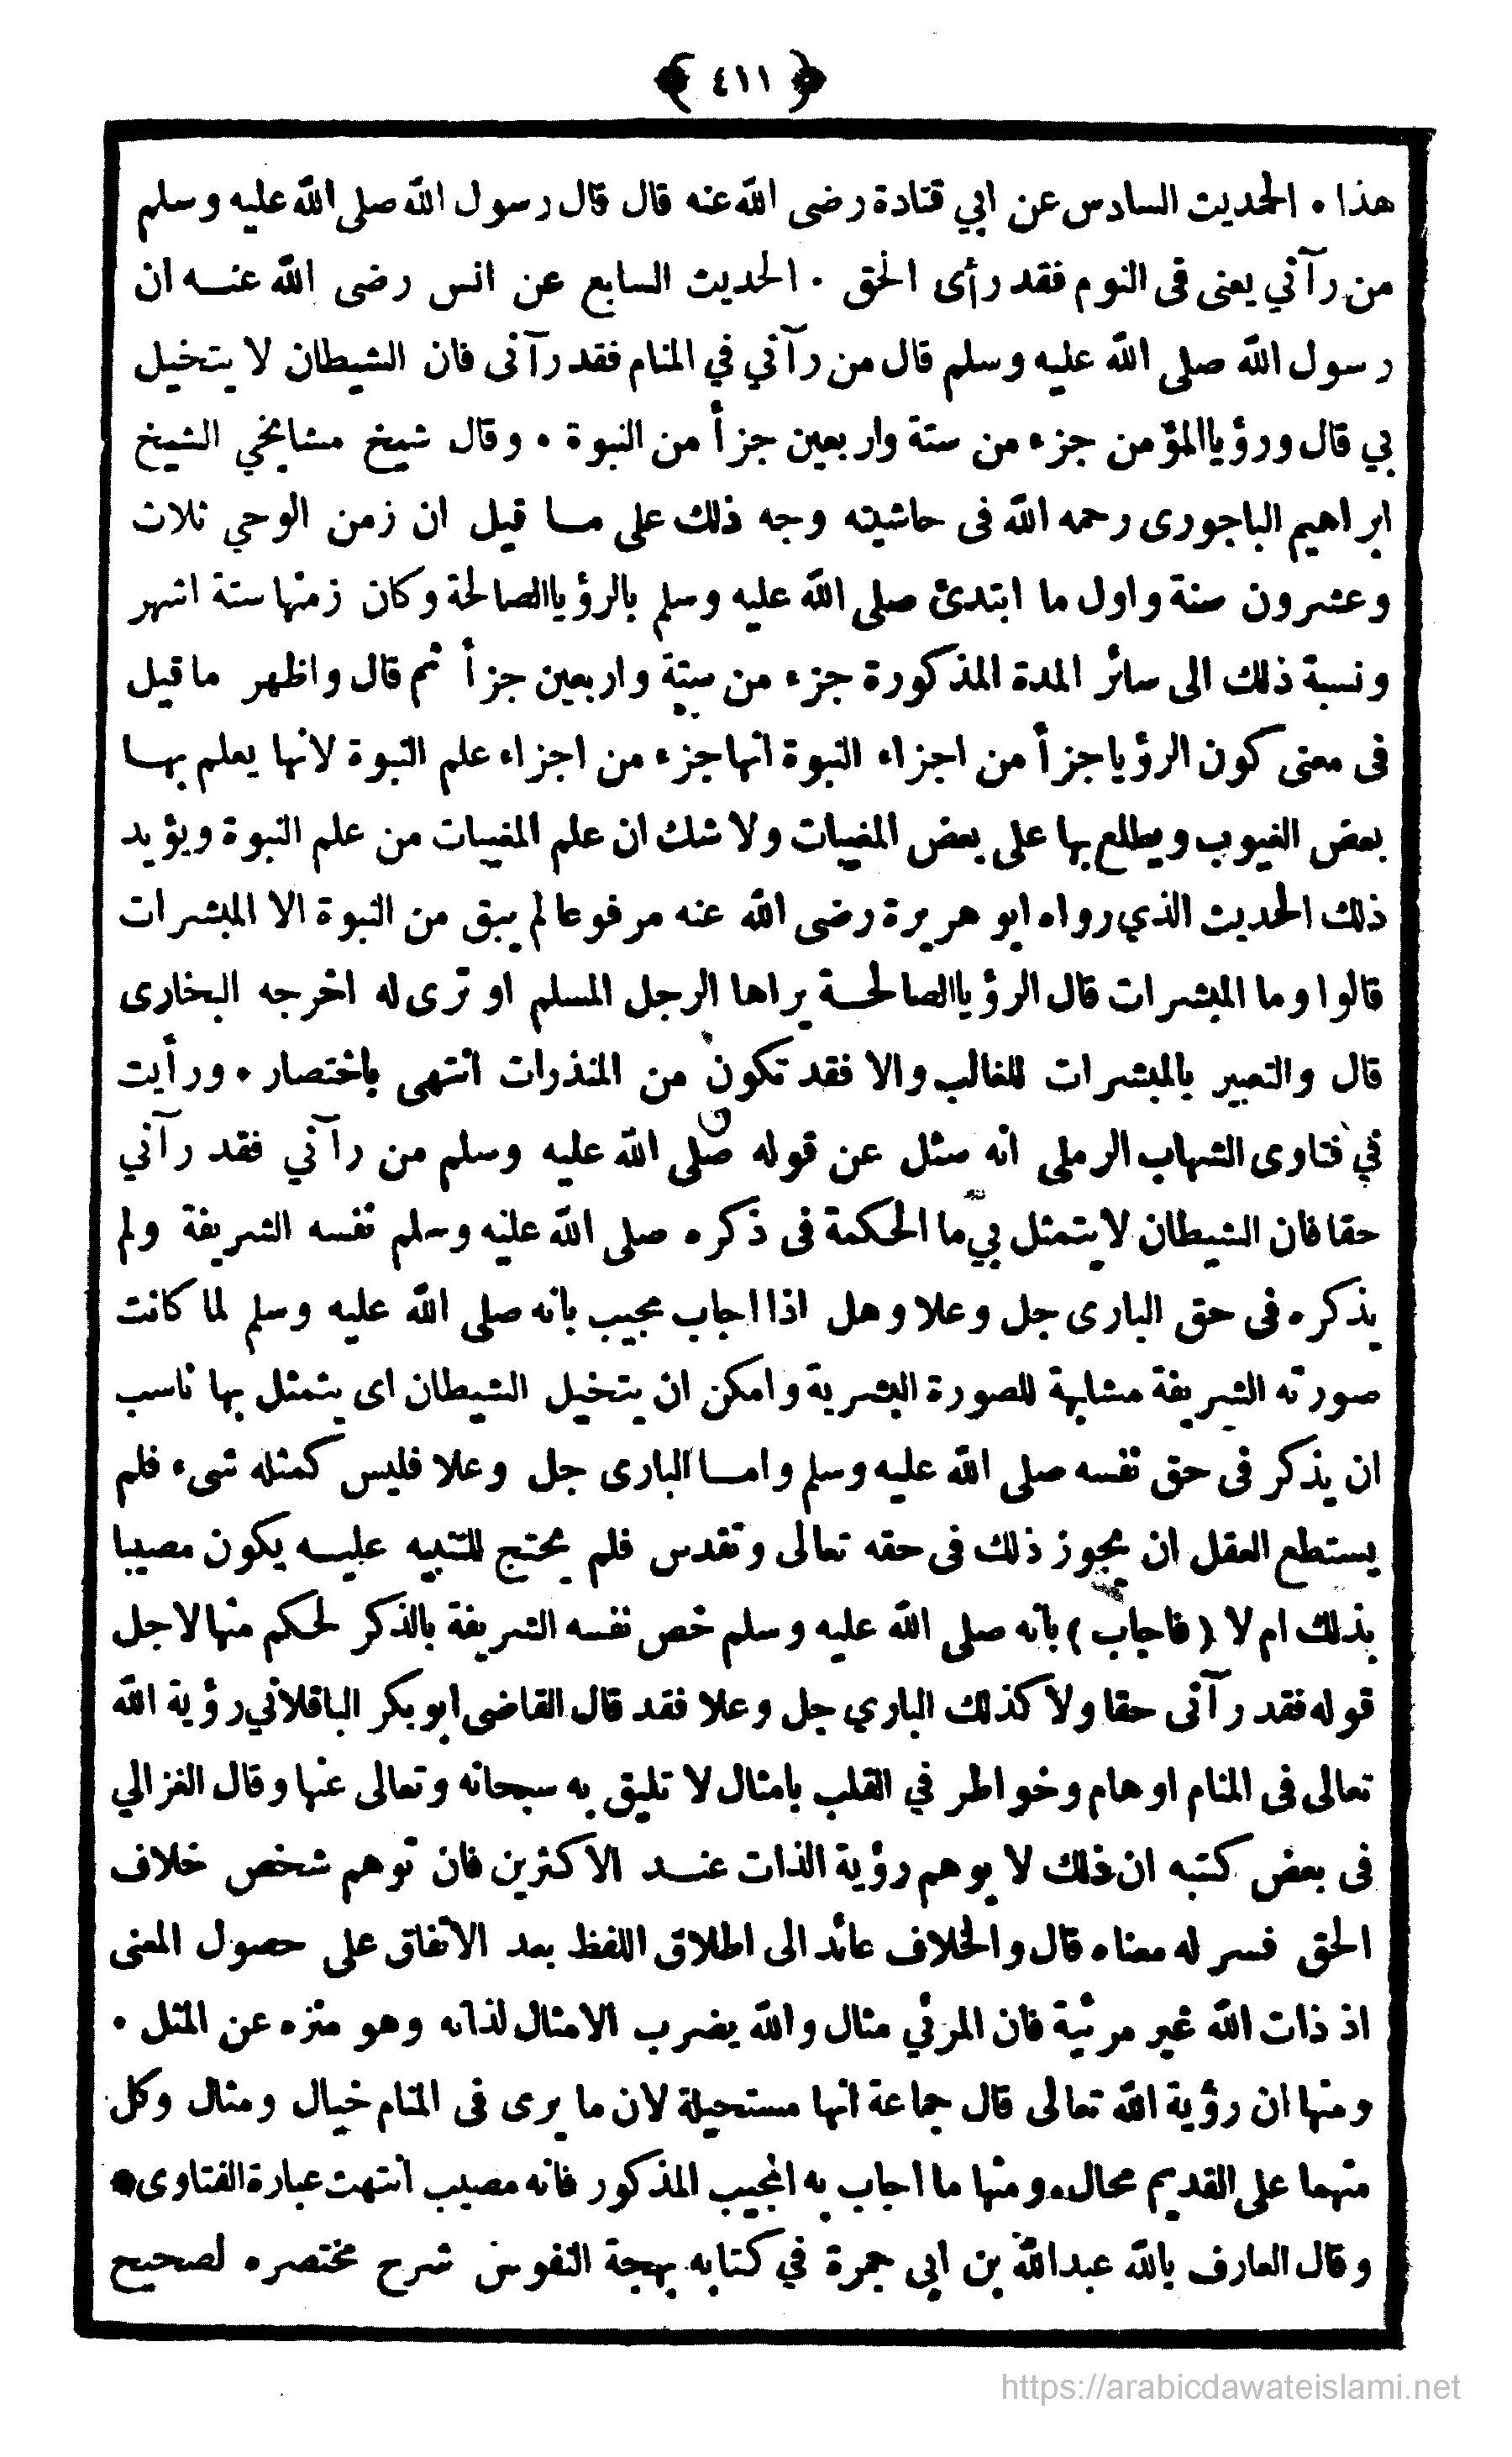 ﴿ ٤١١ ﴾
هذا • الحديث السادس عن ابي قتادة رضى الله عنه قال قال رسول الله صلى الله عليه وسلم
من رآني يعنى فى النوم فقد رأى الحق • الحديث السابع عن انس رضى الله عنه ان
رسول الله صلى الله عليه وسلم قال من رآني في المنام فقد رآنى فان الشيطان لا يتخيل
بي قال ورؤيا المؤمن جزء من ستة واربعين جزأ من النبوة • وقال شيخ مشايخي الشيخ
ابراهيم الباجورى رحمه الله فى حاشيته وجه ذلك على ما قيل ان زمن الوحي ثلاث
وعشرون سنة واول ما ابتدئ صلى الله عليه وسلم بالرؤيا الصالحة وكان زمنها ستة اشهر
ونسبة ذلك الى سائر المدة المذكورة جزء من ستة واربعين جزأ ثم قال واظهر ما قيل
فى معنى كون الرؤيا جزأ من اجزاء النبوة انها جزء من اجزاء علم النبوة لانها يعلم بها
بعض الغيوب ويطلع بها على بعض المغيبات ولا شك ان علم المغيبات من علم النبوة ويؤيد
ذلك الحديث الذي رواه ابو هريرة رضى الله عنه مرفوعا لم يبق من النبوة الا المبشرات
قالوا وما المبشرات قال الرؤيا الصالحة يراها الرجل المسلم او ترى له اخرجه البخارى
قال والتعبير بالمبشرات للغالب والا فقد تكون من المنذرات انتهى باختصار • ورأيت
في فتاوى الشهاب الرملى انه سئل عن قوله صلى الله عليه وسلم من رآني فقد رآني
حقا فان الشيطان لا يتمثل بي ما الحكمة فى ذكره صلى الله عليه وسلم نفسه الشريفة ولم
يذكره فى حق البارى جل وعلا وهل اذا اجاب مجيب بانه صلى الله عليه وسلم لما كانت
صورته الشريفة مشابهة للصورة البشرية وامكن ان يتخيل الشيطان اى يتمثل بها ناسب
ان يذكر فى حق نفسه صلى الله عليه وسلم واما البارى جل وعلا فليس كمثله شىء فلم
يستطع العقل ان يجوز ذلك فى حقه تعالى وتقدس فلم يحتج للتنبيه عليه يكون مصيبا
بذلك ام لا (فاجاب) بانه صلى الله عليه وسلم خص نفسه الشريفة بالذكر لحكم منها لاجل
قوله فقد رآنى حقا ولا كذلك الباري جل وعلا فقد قال القاضى ابو بكر الباقلاني رؤية الله
تعالى فى المنام اوهام وخواطر في القلب بامثال لا تليق به سبحانه وتعالى عنها وقال الغزالي
فى بعض كتبه ان ذلك لا يوهم رؤية الذات عند الاكثرين فان توهم شخص خلاف
الحق فسر له معناه قال والخلاف عائد الى اطلاق اللفظ بعد الاتفاق على حصول المعنى
اذ ذات الله غير مرئية فان المرئي مثال والله يضرب الامثال لذاته وهو منزه عن المثل •
ومنها ان رؤية الله تعالى قال جماعة انها مستحيلة لان ما يرى فى المنام خيال ومثال وكل
منهما على القديم محال • ومنها ما اجاب به المجيب المذكور فانه مصيب انتهت عبارة الفتاوى •
وقال العارف بالله عبد الله بن ابي جمرة في كتابه بهجة النفوس شرح مختصره لصحيح
https://arabicdawateislami.net